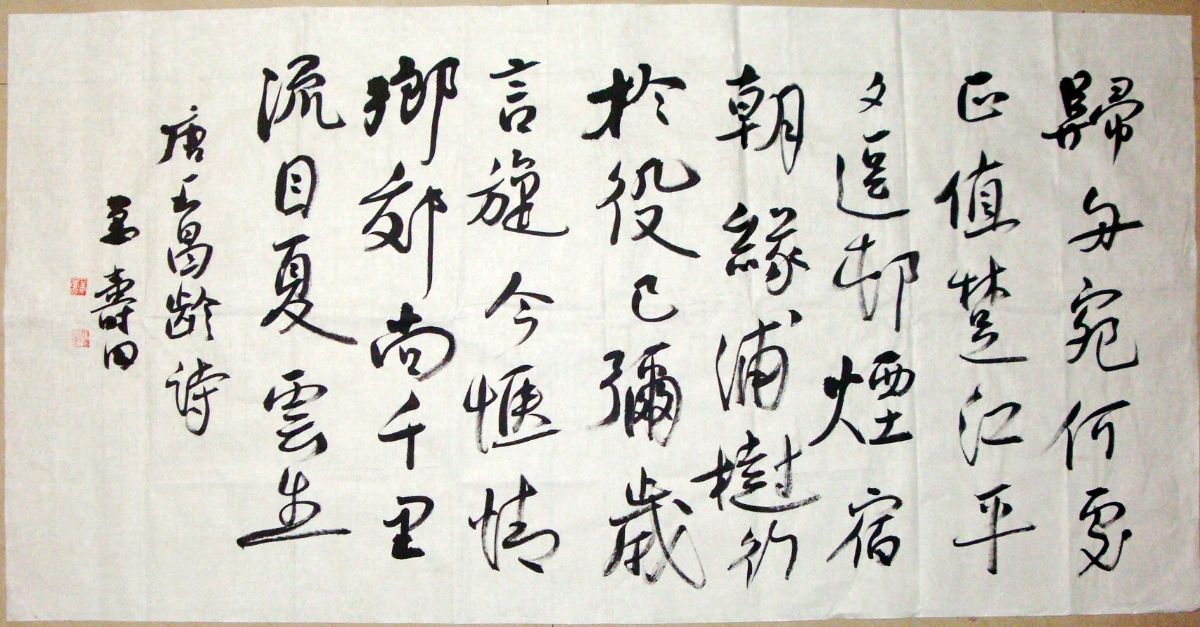 歸舟宛何處
正值楚江平
夕逗邨煙宿
朝緣浦樹行
於役已彌歲
言旋今愜情
鄉郊尚千里
流目夏雲生
唐王昌齡詩
壽田